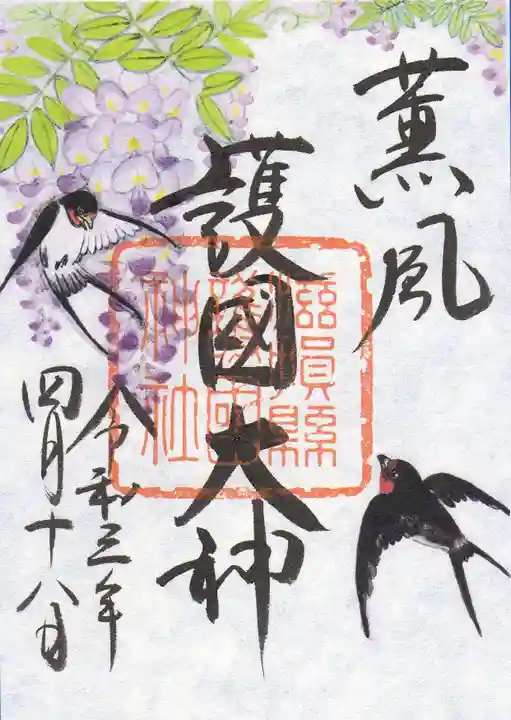 薫風
護國大神
滋賀縣
護國
神社
令和三年
四月十八日